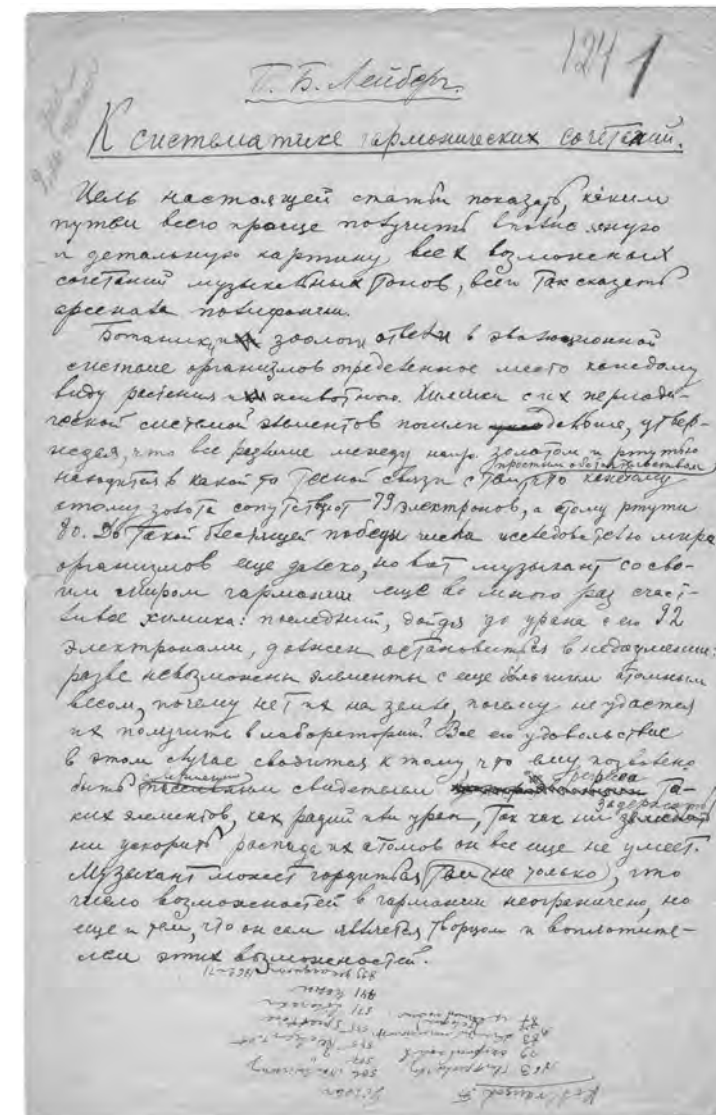 124 1
П. Б. Лейберг.
К систематике гармонических сочетаний.
Цель настоящей статьи показать, каким
путем всего проще получить вполне ясную
и детальную картину всех возможных
сочетаний музыкальных тонов, всего так сказать
арсенала полифонии.
Ботаник, зоолог отвели в эволюционной
системе организмов определенное место каждому
виду растения животного. Химики с их периоди-
ческой системой элементов пошли дальше, утвер-
ждая, что все различие между напр. золотом и ртутью
простым обстоятельством
находится в какой то тесной связи с тем, что каждому
атому золота сопутствуют 79 электронов, а атому ртути
80. До такой блестящей победы числа исследователю мира
организмов еще далеко, но вот музыкант со сво-
им миром гармонии еще во много раз счаст-
ливее химика: последний, дойдя до урана с его 92
электронами, должен остановиться в недоумении:
разве невозможны элементы с еще большим атомным
весом, почему нет их на земле, почему не удается
их получить в лаборатории? Все его удовольствие
в этом случае сводится к тому что ему позволено
быть свидетелем распада та-
ких элементов, как радий или уран, так как ни задержать
ни ускорить распада их атомов он все еще не умеет.
Музыкант может гордиться тем не только, что
число возможностей в гармонии неограничено, но
еще и тем, что он сам является творцом и воплотите-
лем этих возможностей.